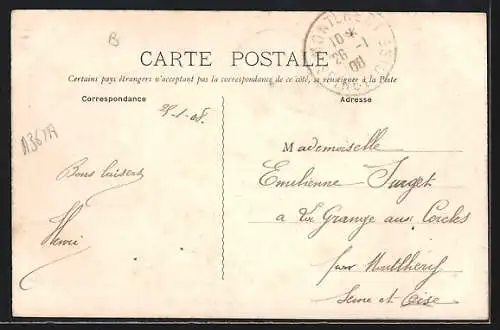 B
MONTLHERY
10 *
26 - 1
08
SEINE-ET-OISE
CARTE POSTALE
Certains pays étrangers n'acceptant pas la correspondance de ce côté, se renseigner à la Poste
Correspondance
Adresse
25-1-08.
A367A
Mademoiselle
Emilienne
à La Grange aux Cercles
par Montlhéry
Seine et Oise
Bons baisers
Henri